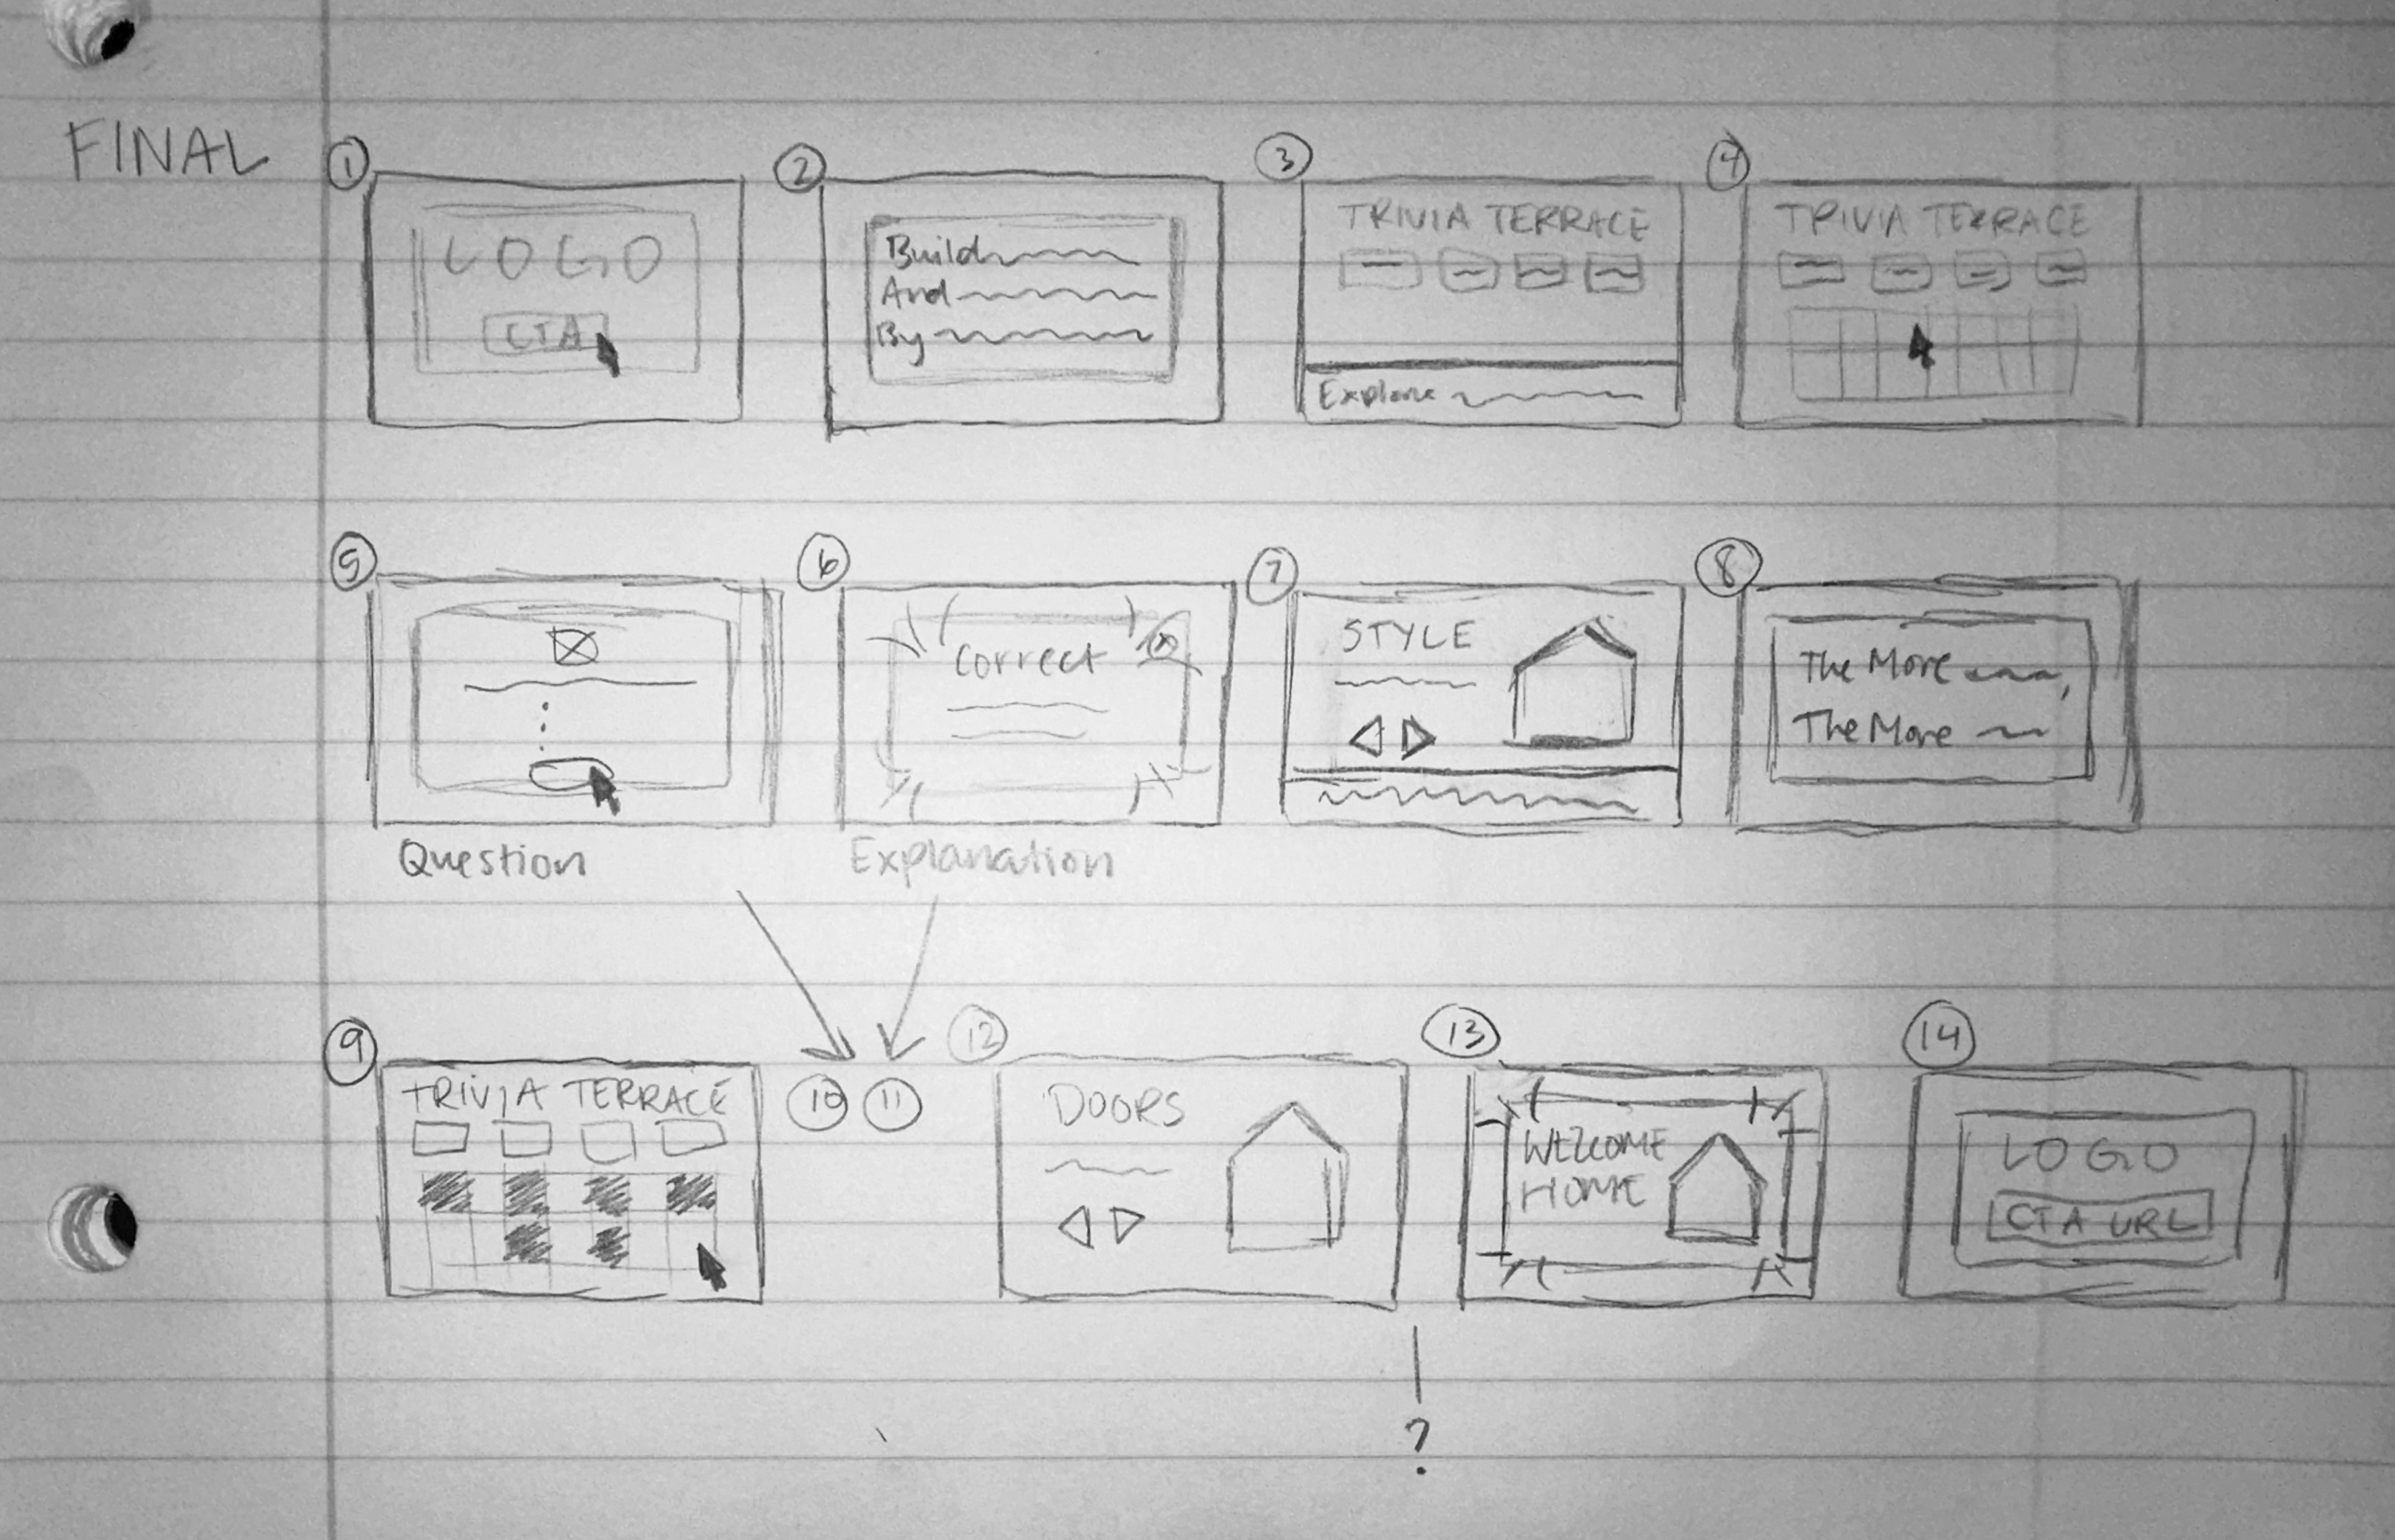 FINAL
1
LOGO
CTA
2
Build
And
By
3
TRIVIA TERRACE
Explore
4
TRIVIA TERRACE
5
Question
6
Correct
Explanation
7
STYLE
8
The More ,
The More
9
TRIVIA TERRACE
10 11
12
DOORS
13
WELCOME
HOME
14
LOGO
CTA URL
?